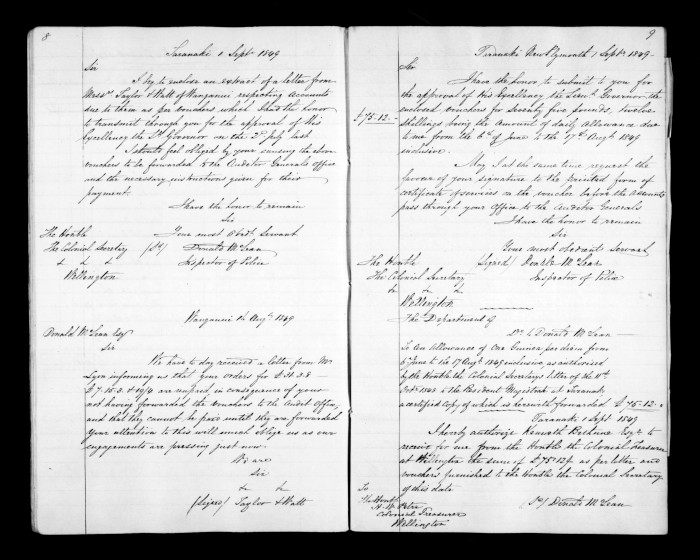 8
Taranaki 1 Septr 1849
Sir
I beg to enclose an extract of a letter from
Messrs Taylor & Watt of Wanganui respecting accounts
due to them as per vouchers which I had the honor
to transmit through you for the approval of His
Excellency the Lt Governor on the 2d July last
I should feel obliged by your causing the above
vouchers to be forwarded to the Auditor Generals Office
and the necessary instructions given for their
payment.
I have the honor to remain
Sir
The Honble
Your most obdt Servant
The Colonial Secretary (Sd) Donald McLean
& & &
Inspector of Police
Wellington
Wanganui Augt 1849
Donald McLean Esqr
Sir
We have to day received a letter from Mr
Lyon informing us that your orders for £31.3.8
£7.15.3 & 10/4 are unpaid, in consequence of your
not having forwarded the Vouchers to the Audit Office,
and that they cannot be paid until they are forwarded
Your attention to this will much oblige us as our
engagements are pressing just now.
We are
Sir
& &
(signed) Taylor & Watt
9
Taranaki New Plymouth 1 Septr 1849
Sir
I have the honor to submit to you for
the approval of His Excellency the Lieut Governor the
enclosed vouchers for seventy five pounds, twelve
£75-12-
shillings being the amount of daily Allowance due
to me from the of June to the 17th Augt 1849
inclusive.
May I at the same time request the
favour of your signature to the printed form of
certificate of services on the voucher before the accounts
pass through your Office to the Auditor Generals
I have the honor to remain
Sir
Your most obedient Servant
The Honble
Signed/ Donald McLean
The Colonial Secretary
Inspector of Police
& & &
Wellington
The Department of
Dr to Donald McLean
To an allowance of One Guinea per diem from
June to the 17 Augt 1849 inclusive, as authorised
by the Honble the Colonial Secretarys letter of the
1848 to the Resident Magistrate at Taranaki
a certified copy of which is herewith forwarded £75-12-0
Taranaki 1 Sept 1849
I hereby authorize Esqre to
receive for me from the Honble the Colonial Treasurer
at Wellington the sum of £75-12/- as per letter and
vouchers furnished to the Honble the Colonial Secretary
of this date
To
(Sd) Donald McLean
The Honble
H. W. Petre
Colonial Treasurer
Wellington